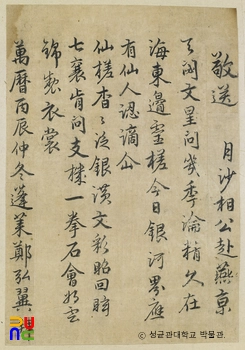 敬送 月沙相公赴燕京
天問文星問幾季論精久在
海東邊靈槎今日銀河畧應
有仙人認謫仙
仙槎杳杳泛銀漢文彩昭回暎
七襄肯問支機一拳石會將雲
錦製衣裳
萬曆丙辰仲冬蓬萊鄭弘翼
ⓒ 성균관대학교 박물관.